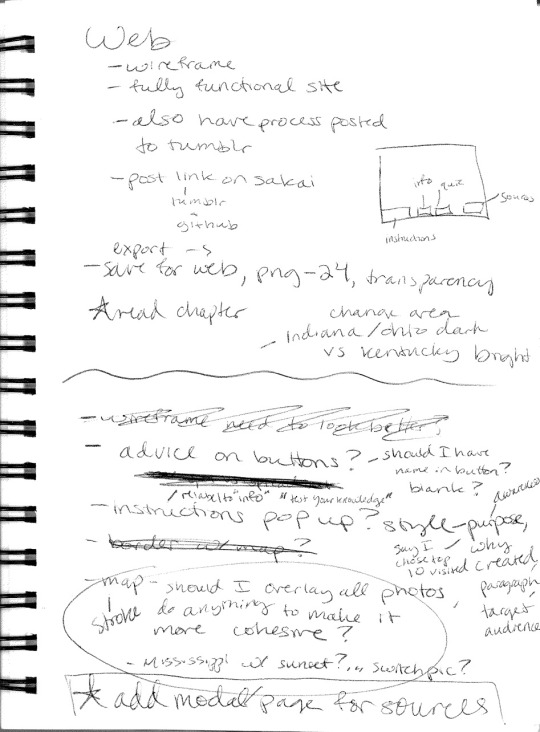 Web
- wireframe
- fully functional site
- also have process posted
to tumblr
- post link on sakai
tumblr
github
info quiz
sources
instructions
export ->
- save for web, png-24, transparency
★ read chapter
change area
- indiana/ohio dark
vs kentucky bright
- wireframe need to look better,
- advice on buttons? - should I have
name in button?
blank?
/ relabel to "info" "test your knowledge"
- instructions pop up? style-purpose,
awareness
- border w/ map?
say I
chose top
10 visited
why
created,
paragraph,
target
audience
- map - should I overlay all photos
stroke do anything to make it
more cohesive?
- Mississippi w/ sunset?... switch pic?
★ add modal/page for sources